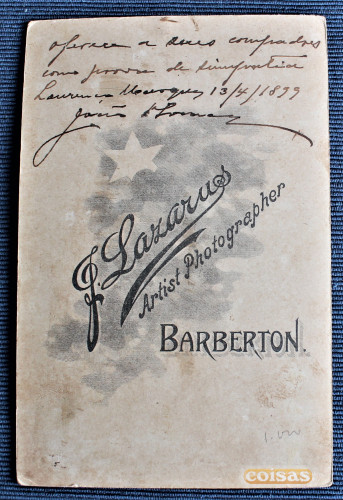 oferece a seus compadres
como prova de simpathia
Lourenço Marques 13/4/1899
João
J. Lazarus
Artist Photographer
BARBERTON.
5
coisas